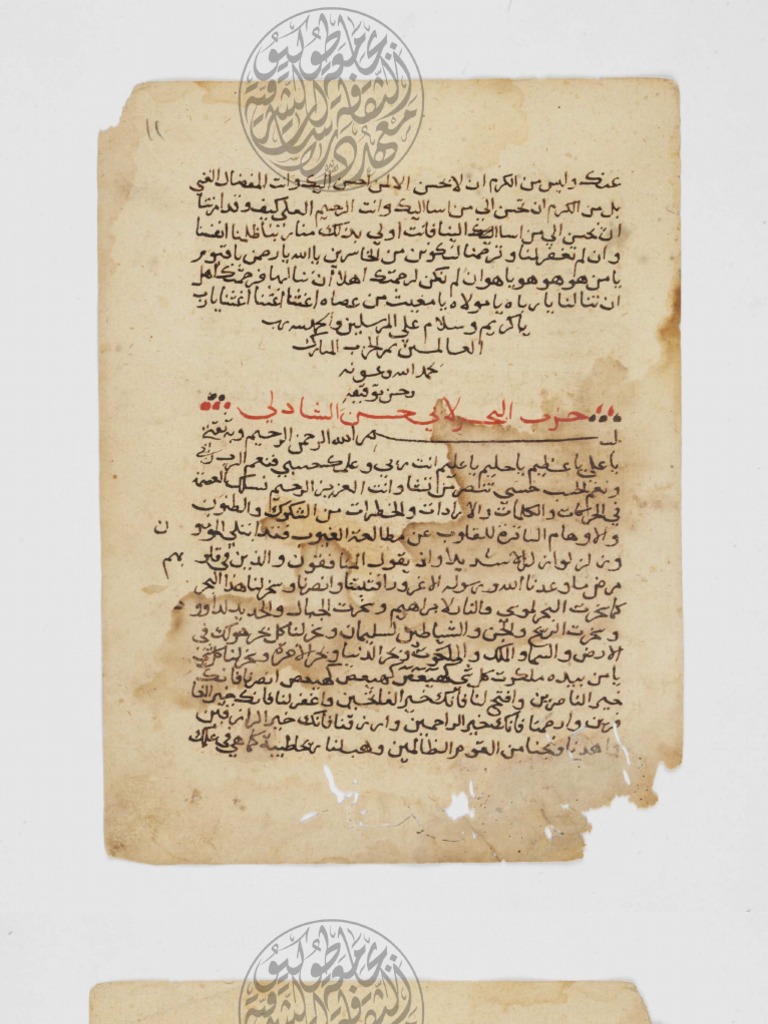 ١١
عنك وليس من الكرم ان لا تحسن الا لمن احسن اليك وانت المفضال الغني
بل من الكرم ان تحسن الي من اسا اليك وانت الرحيم العلي كيف وقد امرتنا
ان نحسن الي من اسا الينا فانت اولي بذلك منا ربنا ظلمنا انفسنا
وان لم تغفر لنا وترحمنا لنكونن من الخاسرين يا الله يا رحمن يا قيوم
يا من هو هو هو يا هو ان لم نكن لرحمتك اهلا ان ننالها فرحمتك اهل
ان تنالنا يا رباه يا مولاه يا مغيث من عصاه اغثنا اغثنا اغثنا يا رب
يا كريم وسلام علي المرسلين والحمد لله رب
العالمين تم الحزب المبارك
بحمد الله وعونه
وحسن توفيقه
حزب البحر لابي حسن الشادلي
بسم الله الرحمن الرحيم وبه ثقتي
يا علي يا عظيم يا حليم يا عليم انت ربي وعلمك حسبي فنعم الرب ربي
ونعم الحسب حسبي تنصر من تشا وانت العزيز الرحيم نسئلك العصمة
في الحركات والكلمات والارادات والخطرات من الشكوك والظنون
والاوهام الساترة للقلوب عن مطالعة الغيوب فقد ابتلي المؤمنو
ن
وزلزلوا زلزالا شديدا واذ يقول المنافقون والذين في قلو
بهم
مرض ما وعدنا الله ورسوله الا غرورا فثبتنا وانصرنا وسخر لنا هذا البحر
كما سخرت البحر لموسي والنار لابراهيم وسخرت الجبال والحديد لداوو
د
وسخرت الريح والجن والشياطين لسليمان وسخر لنا كل بحر هو لك في
الارض والسما والملك والملكوت وبحر الدنيا وبحر الاخرة وسخر لنا كل شي
يا من بيده ملكوت كل شي كهيعص كهيعص كهيعص انصرنا فانك
خير الناصرين وافتح لنا فانك خير الفاتحين واغفر لنا فانك خير الغا
فرين وارحمنا فانك خير الراحمين وارزقنا فانك خير الرازقين
واهدنا ونجنا من القوم الظالمين وهب لنا ريحا طيبة كما هي في علمك